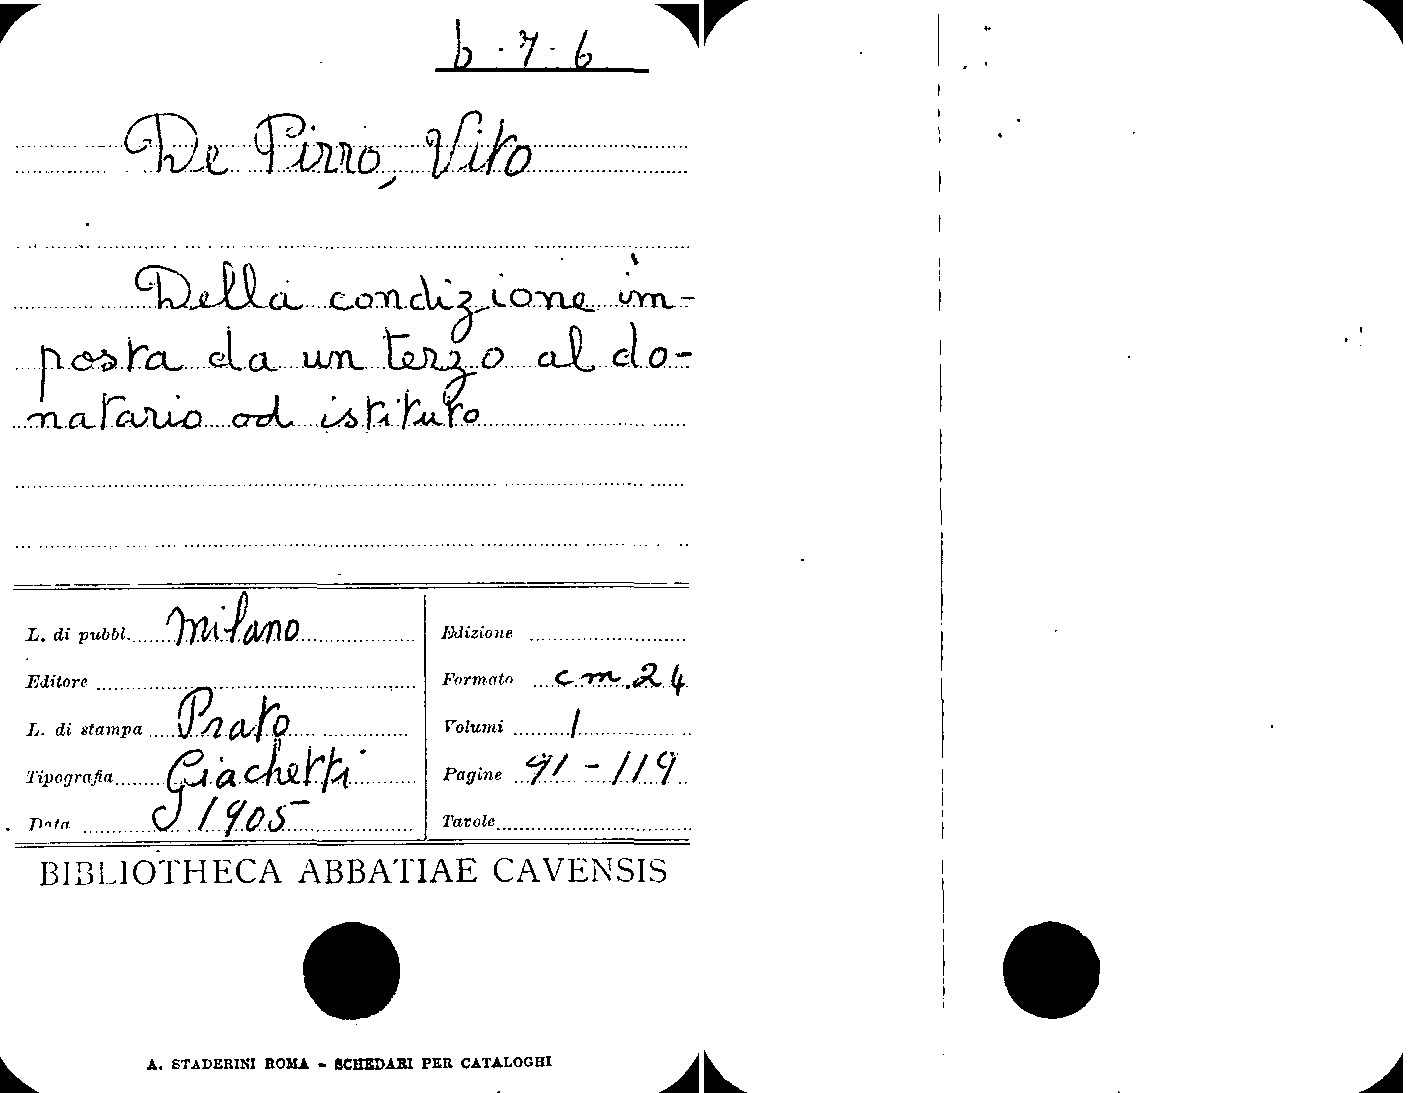 b. 7. 6
De Pirro, Vito
Della condizione im-
posta da un terzo al do-
natario od istituto
L. di pubbl. Milano
Editore
L. di stampa Prato
Tipografia Giachetti
Data 1905
Edizione
Formato cm. 24
Volumi 1
Pagine 91 - 119
Tavole
BIBLIOTHECA ABBATIAE CAVENSIS
A. STADERINI ROMA - SCHEDARI PER CATALOGHI